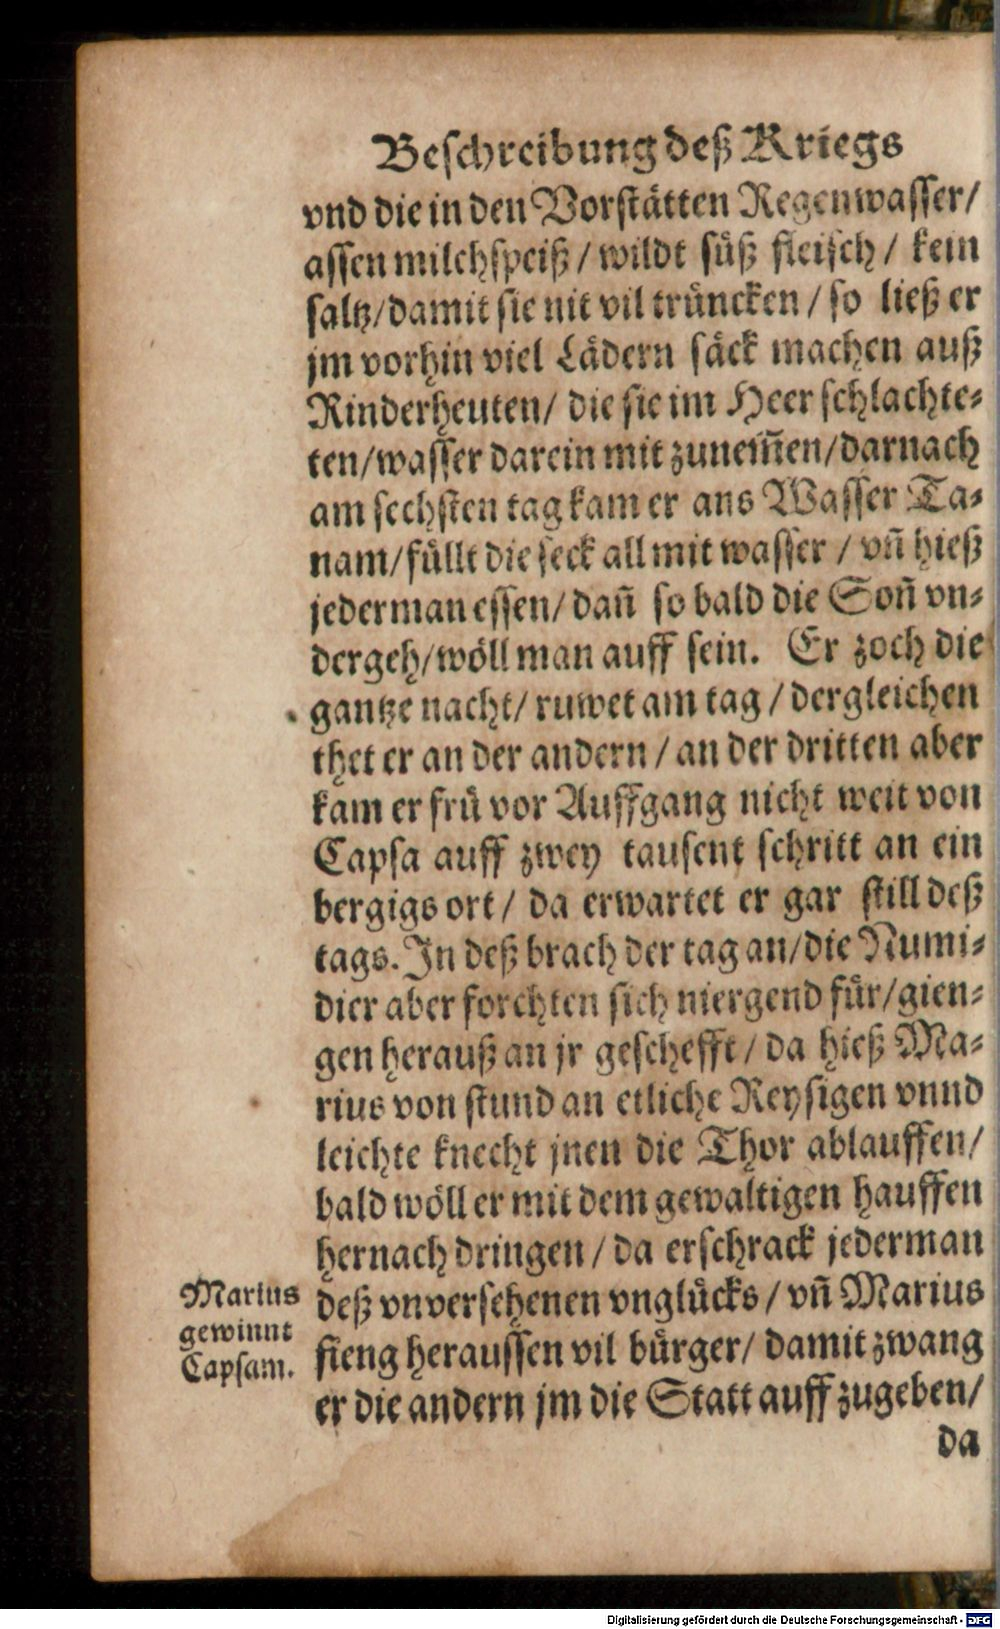 Beschreibung deß Kriegs
vnd die in den Vorstätten Regenwasser/
assen milchspeiß / wildt süß fleisch / kein
saltz/damit sie nit vil trüncken / so ließ er
jm vorhin viel Lädern säck machen auß
Rinderheuten/ die sie im Heer schlachte⸗
ten/wasser darein mit zunem̃en/darnach
am sechsten tag kam er ans Wasser Ta⸗
nam/füllt die seck all mit wasser / vñ hieß
jederman essen/ dañ so bald die Soñ vn⸗
dergeh/wöll man auff sein. Er zoch die
gantze nacht/ ruwet am tag / dergleichen
thet er an der andern / an der dritten aber
kam er frü vor Auffgang nicht weit von
Capsa auff zwey tausent schritt an ein
bergigs ort / da erwartet er gar still deß
tags. In deß brach der tag an/die Numi⸗
dier aber forchten sich niergend für/gien⸗
gen herauß an jr geschefft / da hieß Ma⸗
rius von stund an etliche Reysigen vnnd
leichte knecht jnen die Thor ablauffen/
bald wöll er mit dem gewaltigen hauffen
hernach dringen / da erschrack jederman
deß vnversehenen vnglücks / vñ Marius
fieng heraussen vil bürger/ damit zwang
er die andern jm die Statt auff zugeben/
da
Marius
gewinnt
Capsam.
Digitalisierung gefördert durch die Deutsche Forschungsgemeinschaft - DFG